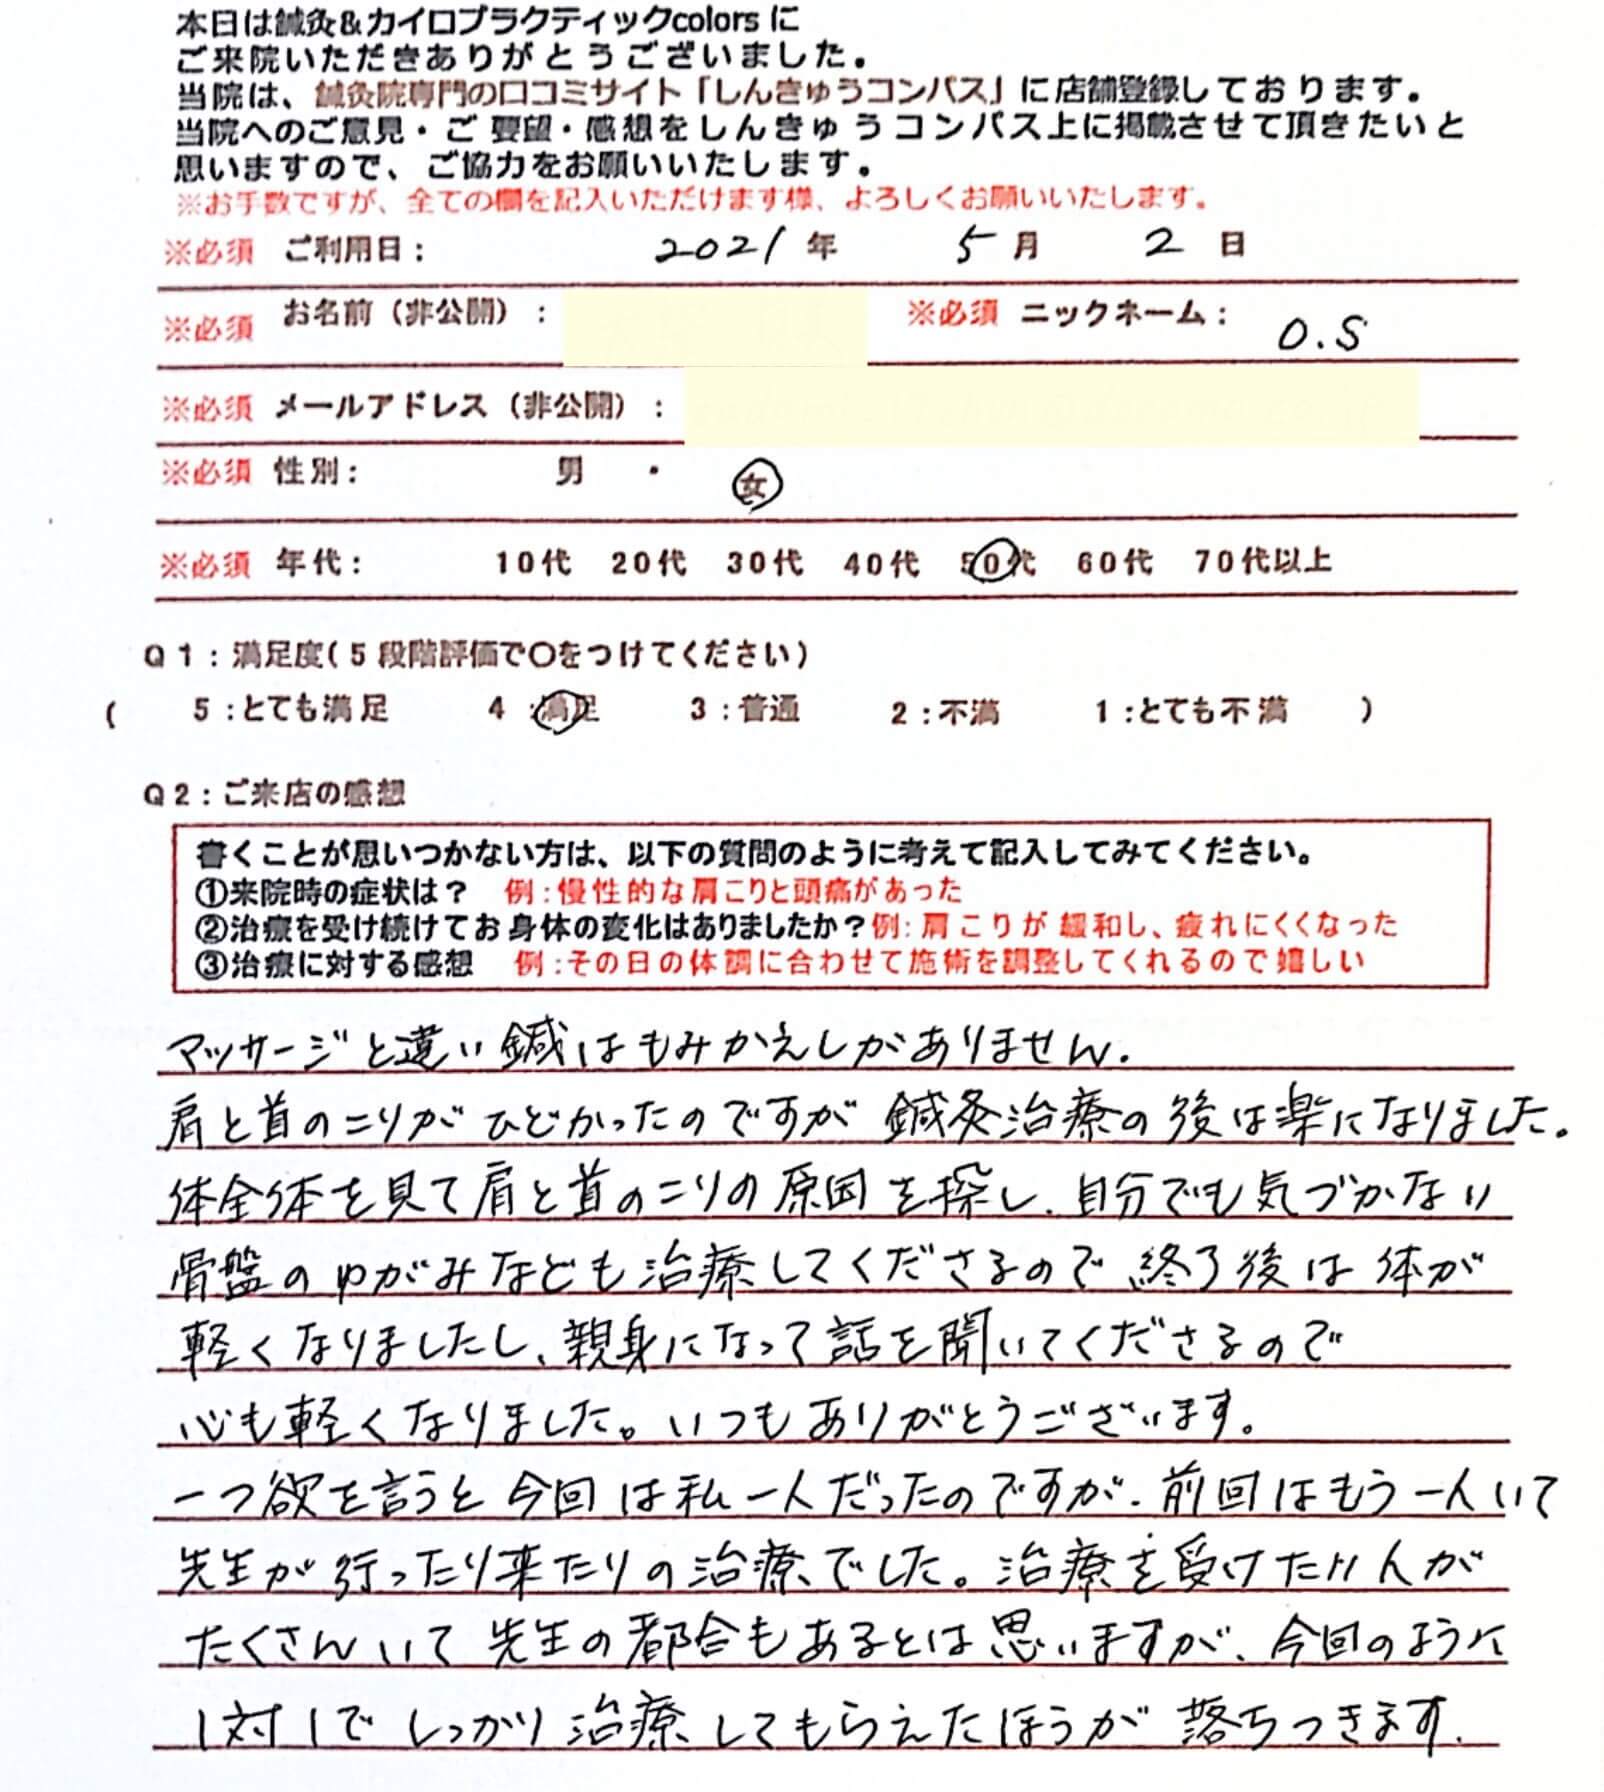 本日は鍼灸&カイロプラクティックcolorsに
ご来院いただきありがとうございました。
当院は、鍼灸院専門の口コミサイト「しんきゅうコンパス」に店舗登録しております。
当院へのご意見・ご要望・感想をしんきゅうコンパス上に掲載させて頂きたいと
思いますので、ご協力をお願いいたします。
※お手数ですが、全ての欄を記入いただけます様、よろしくお願いいたします。
※必須 ご利用日: 2021年 5月 2日
※必須 お名前(非公開): ※必須 ニックネーム: O.S
※必須 メールアドレス(非公開):
※必須 性別: 男 ・ 女
※必須 年代: 10代 20代 30代 40代 50代 60代 70代以上
Q1:満足度(5段階評価で〇をつけてください)
( 5:とても満足 4:満足 3:普通 2:不満 1:とても不満 )
Q2:ご来店の感想
書くことが思いつかない方は、以下の質問のように考えて記入してみてください。
①来院時の症状は? 例:慢性的な肩こりと頭痛があった
②治療を受け続けてお身体の変化はありましたか?例:肩こりが緩和し、疲れにくくなった
③治療に対する感想 例:その日の体調に合わせて施術を調整してくれるので嬉しい
マッサージと違い鍼はもみかえしがありません.
肩と首のこりがひどかったのですが鍼灸治療の後は楽になりました。
体全体を見て肩と首のこりの原因を探し、自分でも気づかない
骨盤のゆがみなども治療してくださるので終了後は体が
軽くなりましたし、親身になって話を聞いてくださるので
心も軽くなりました。いつもありがとうございます。
一つ欲を言うと今回は私一人だったのですが、前回はもう一人いて
先生が行ったり来たりの治療でした。治療を受けたい人が
たくさんいて先生の都合もあるとは思いますが、今回のように
1対1でしっかり治療してもらえたほうが落ちつきます.